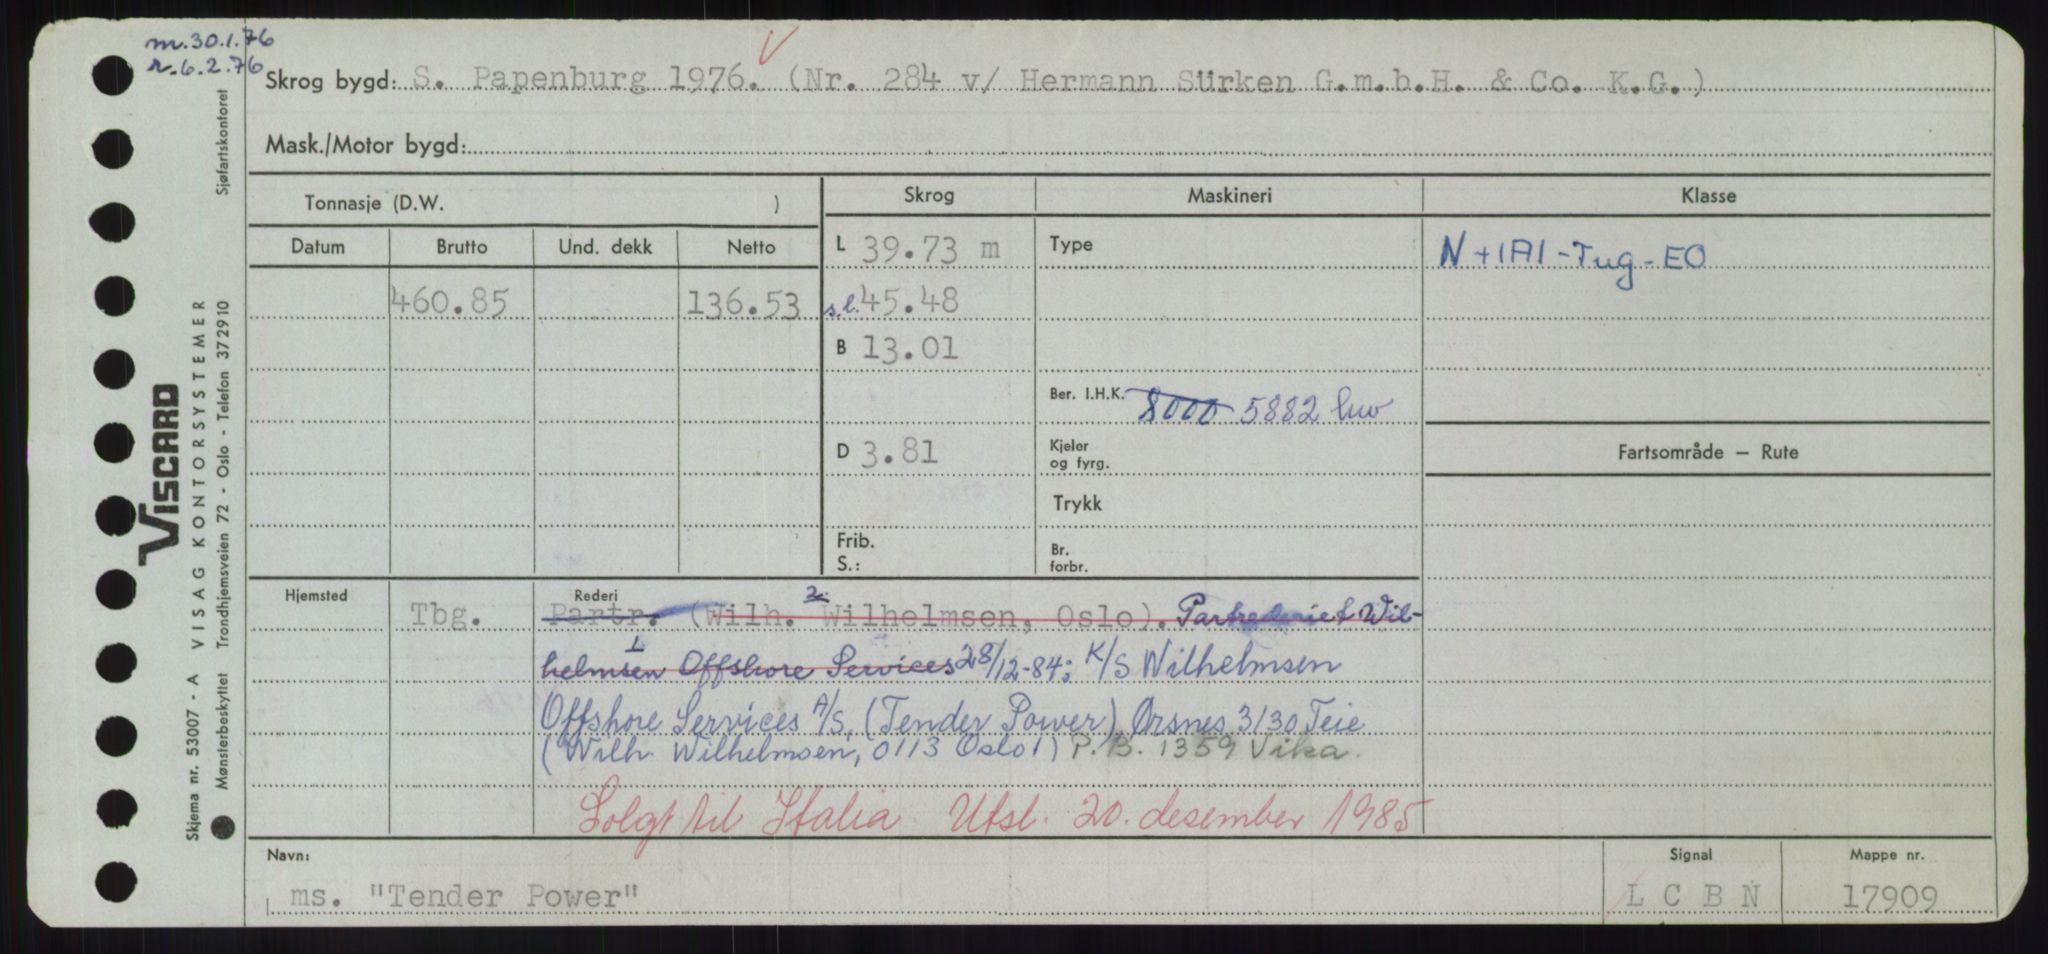 m.30.1.76
r.6.2.76
Skrog bygd: S. Papenburg 1976. (Nr. 284 v/ Hermann Sürken G.m.b.H. & Co. K.G.)
Mask./Motor bygd:
Tonnasje (D.W. )
Skrog
Maskineri
Klasse
Datum Brutto Und. dekk Netto
L 39.73 m
Type
N +1A1-Tug-EO
460.85 136.53 s.l. 45.48
B 13.01
Ber. I.H.K. 8000 5882 kw
D 3.81
Kjeler
og fyrg.
Fartsområde – Rute
Trykk
Frib.
S.:
Br.
forbr.
Hjemsted Tbg.
Rederi 2.
Partr. (Wilh. Wilhelmsen, Oslo). Partrederiet Wil-
1
helmsen Offshore Services 28/12-84: K/S Wilhelmsen
Offshore Services A/S, (Tender Power) Ørsnes 3130 Teie
(Wilh. Wilhelmsen, 0113 Oslo 1) P.B. 1359 Vika.
Solgt til Italia. Utsl. 20. desember 1985
Navn:
ms. "Tender Power"
Signal
L C B N
Mappe nr.
17909
VISCARD
VISAG KONTORSYSTEMER
Skjema nr. 53007 - A
Mønsterbeskyttet
Trondhjemsveien 72 - Oslo - Telefon 372910
Sjøfartskontoret